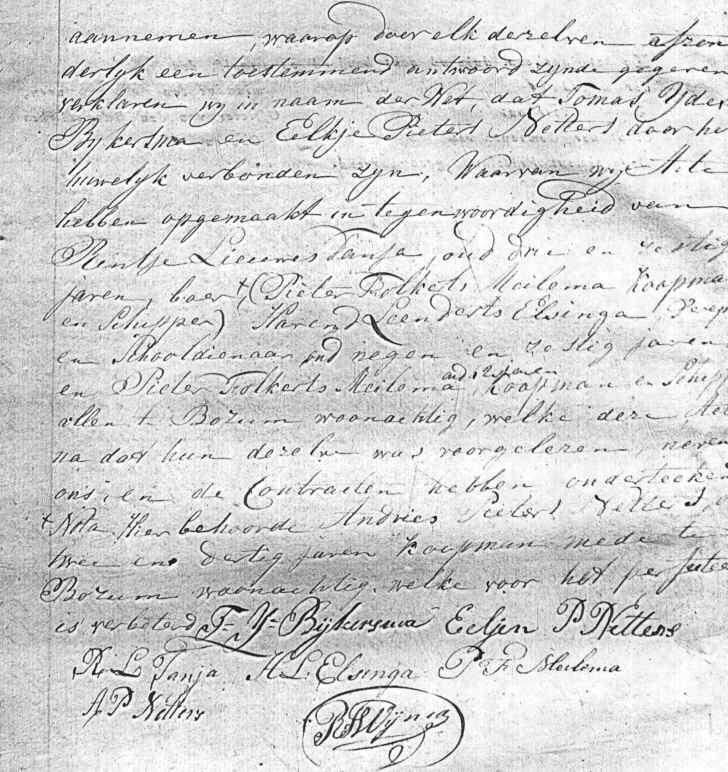 aannemen, waarop door elk derzelven afzon
derlyk een toestemmend antwoord zynde gegeven
verklaren wy in naam der Wet, dat Tomas Ydes
Bykersma en Eelkje Pieters Netters door he
huwelyk verbonden zyn, Waarvan wy Acte
hebben opgemaakt in tegenwoordigheid van
Rintje Lieuwes Tanja, oud drie en zestig
jaren, boer, + (Pieter Folkerts Meilema Koopma
en Schipper) Harend Leenderts Elsinga
en Schooldienaar, oud negen en zestig jaren
en Pieter Folkerts Meilema oud jaren Koopman en Schip
allen te Bozum woonachtig, welke deze Ac
na dat hun dezelve was voorgelezen, neven
ons, en de Contracten hebben onderteeken
+ Nota Hier behoorde Andries Pieters Netters,
twee en dertig jaren Koopman mede te
Bozum woonachtig. welke voor het
is verbeterd T= Y= Bijkersma Eeljen P Netters
R L Tanja H L Elsinga P F Meilema
A P Netters